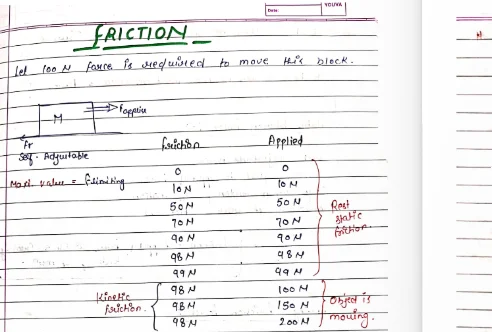 Date:
YOUVA
FRICTION
let 100 N force is required to move this block.
M
Fapplie
fr
Self-Adjustable
Maxi. value = flimiting
friction Applied
0 0
10 N 10 N
50 N 50 N
70 N 70 N
90 N 90 N
98 N 98 N
99 N 99 N
Rest
static
friction
98 N 100 N
98 N 150 N
98 N 200 N
Kinetic
friction.
Object is
moving.